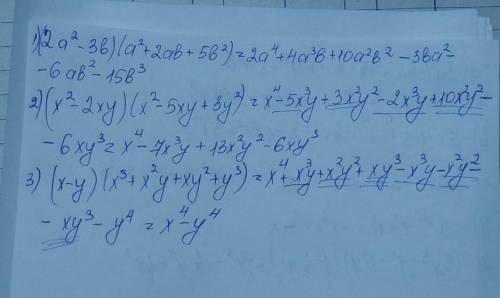 1) (2a² - 3b)(a² + 2ab + 5b²) = 2a⁴ + 4a³b + 10a²b² - 3ba² -
- 6ab² - 15b³
2) (x² - 2xy)(x² - 5xy + 3y²) = x⁴ - 5x³y + 3x²y² - 2x³y + 10x²y² -
- 6xy³ = x⁴ - 7x³y + 13x²y² - 6xy³
3) (x-y)(x³ + x²y + xy² + y³) = x⁴ + x³y + x²y² + xy³ - x³y - x²y² -
- xy³ - y⁴ = x⁴ - y⁴